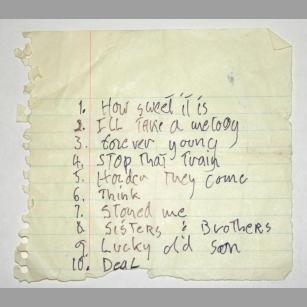 1. How sweet it is
2. I'LL TAKE a melody
3. forever young
4. STOP That Train
5. Harder They Come
6. Think
7. Stoned me
8. SISTERS & BROTHERS
9. Lucky old Son
10. DEAL